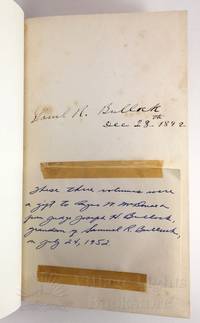 Saml R. Bullock
Dec 23th 1842
These three volumes were
a gift to W.
from Judge Joseph H Bullock,
grandson of Samuel R. Bullock,
on July 24, 1952